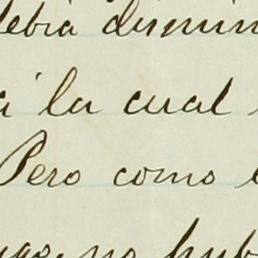 debia dismin
a la cual
Pero como e
no hub